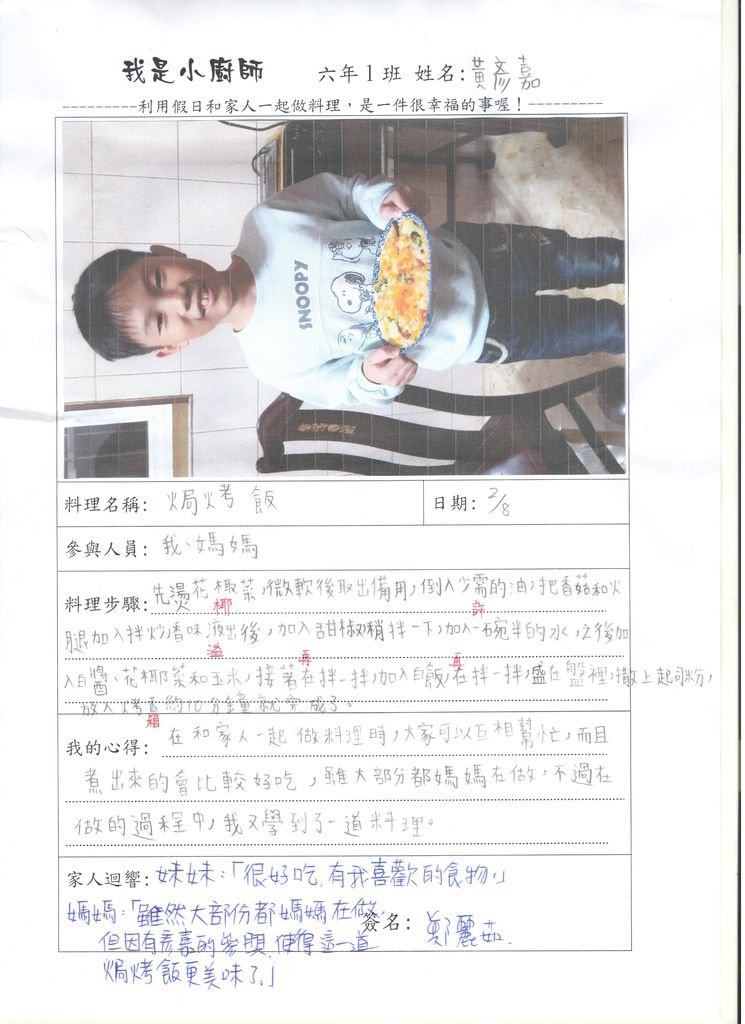 我是小廚師 六年1班 姓名:黃彥嘉
---------利用假日和家人一起做料理，是一件很幸福的事喔！---------
SNOOPY
料理名稱: 焗烤飯 日期: 2/8
參與人員: 我、媽媽
料理步驟: 先燙花椰菜，微軟後取出備用，倒入少需的油，把香菇和火
椰 許
腿加入拌炒，香味液出後，加入甜椒稍拌一下，加入一碗半的水，之後加
溢 再 再
入白醬、花椰菜和玉米，接著在拌一拌，加入白飯，在拌一拌，盛在盤裡，撒上起司粉，
放入烤香約10分鐘就完成了。
箱
我的心得: 在和家人一起做料理時，大家可以互相幫忙，而且
煮出來的會比較好吃，雖大部分都媽媽在做，不過在
做的過程中，我又學到了一道料理。
家人迴響: 妹妹:「很好吃，有我喜歡的食物。」
媽媽:「雖然大部份都媽媽在做， 簽名: 鄭麗茹
但因有彥嘉的參與，使得這一道
焗烤飯更美味了。」